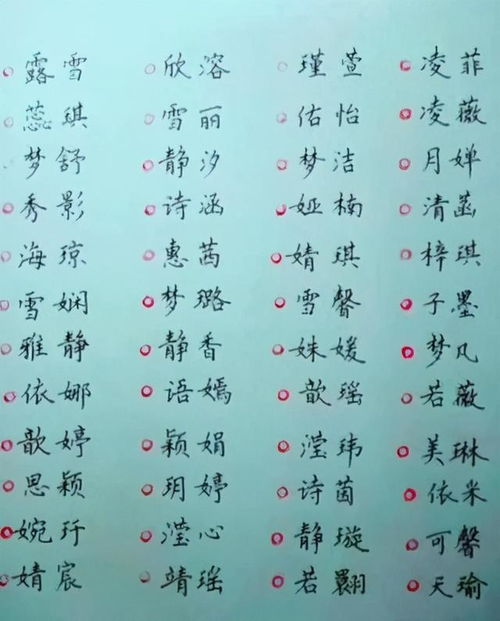 露雪 欣溶 瑾萱 凌菲
蕊琪 雪丽 佑怡 凌薇
梦舒 静汐 梦洁 月婵
秀影 诗涵 娅楠 清菡
海琼 惠茜 婧琪 梓琪
雪娴 梦璐 雪馨 子墨
雅静 静香 姝媛 梦凡
依娜 语嫣 歆瑶 若薇
歆婷 颖娟 滢玮 美琳
思颖 玥婷 诗茵 依米
婉玗 滢心 静璇 可馨
婧宸 靖瑶 若翾 天瑜